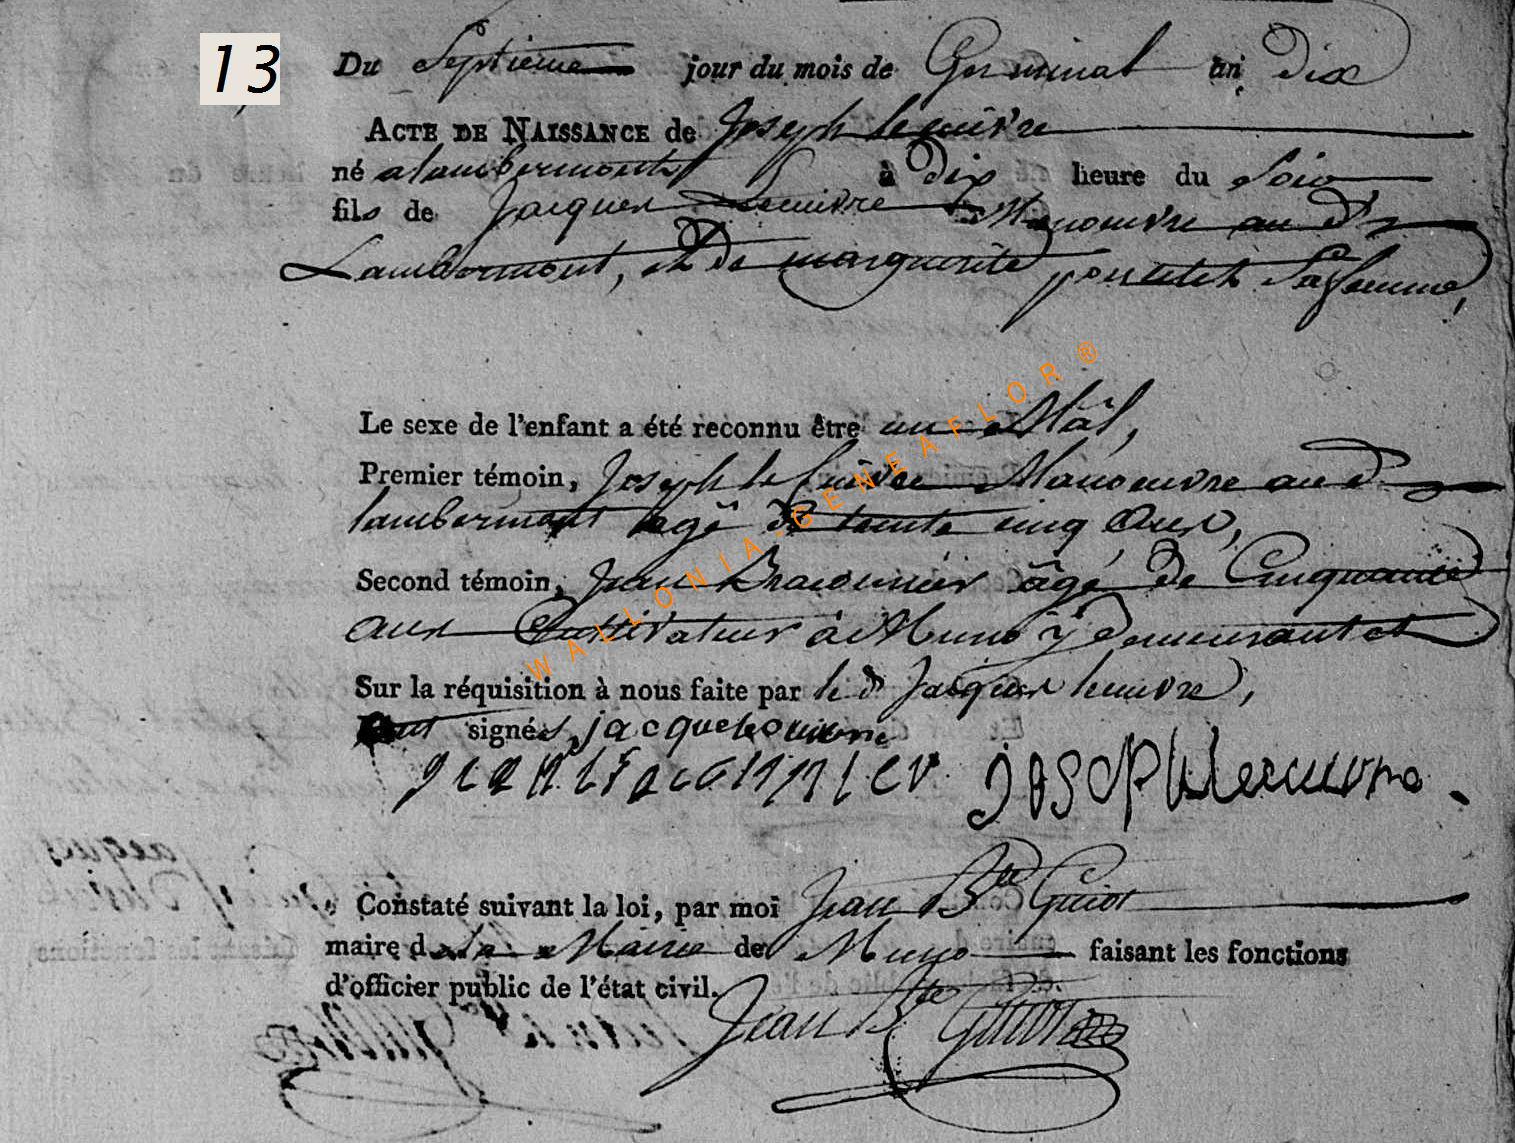 13
Du Septieme jour du mois de Germinal an Dix
ACTE DE NAISSANCE de Joseph lecuivre
né a lambermont à Dix heure du Soir
fils de Jacques Lecuivre Manouvre au d.
Lambermont, et de marguerite ponselet Sa femme,
Le sexe de l'enfant a été reconnu être un Mâl,
Premier témoin, Joseph le Cuivre Manouvre au d.
lambermont agê de trente cinq ans,
Second témoin, Jean Braconnier âgé de Cinquante
ans Cultivateur à Muno ÿ demeurant et
Sur la réquisition à nous faite par le d. Jacques lecuivre,
ont signés, jacque lecuivre
jean braconnier joseph lecuivre.
Constaté suivant la loi, par moi Jean Bte Guiot
maire de la Mairie de Muno faisant les fonctions
d'officier public de l'état civil. Jean Bte Guiot
WALLONIA-GENEAFLOR®